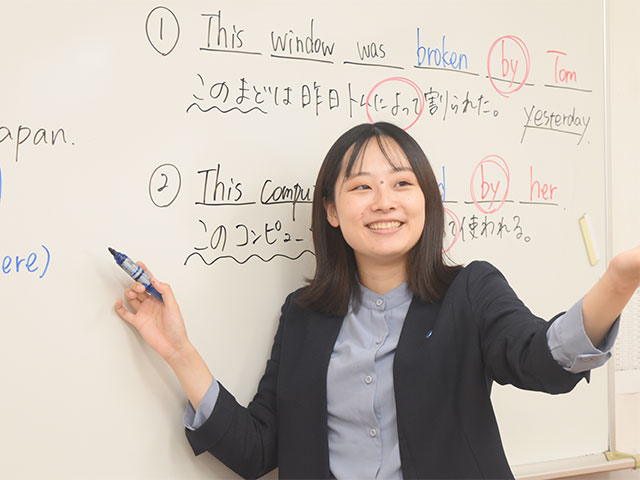 ① This window was broken by Tom
yesterday.
このまどは昨日トムによって割られた。
apan.
② This compu by her
このコンピュー て使われる。
ere)